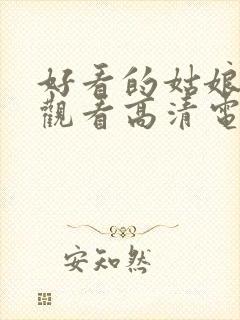 好看的姑娘
觀看高清電
安知然